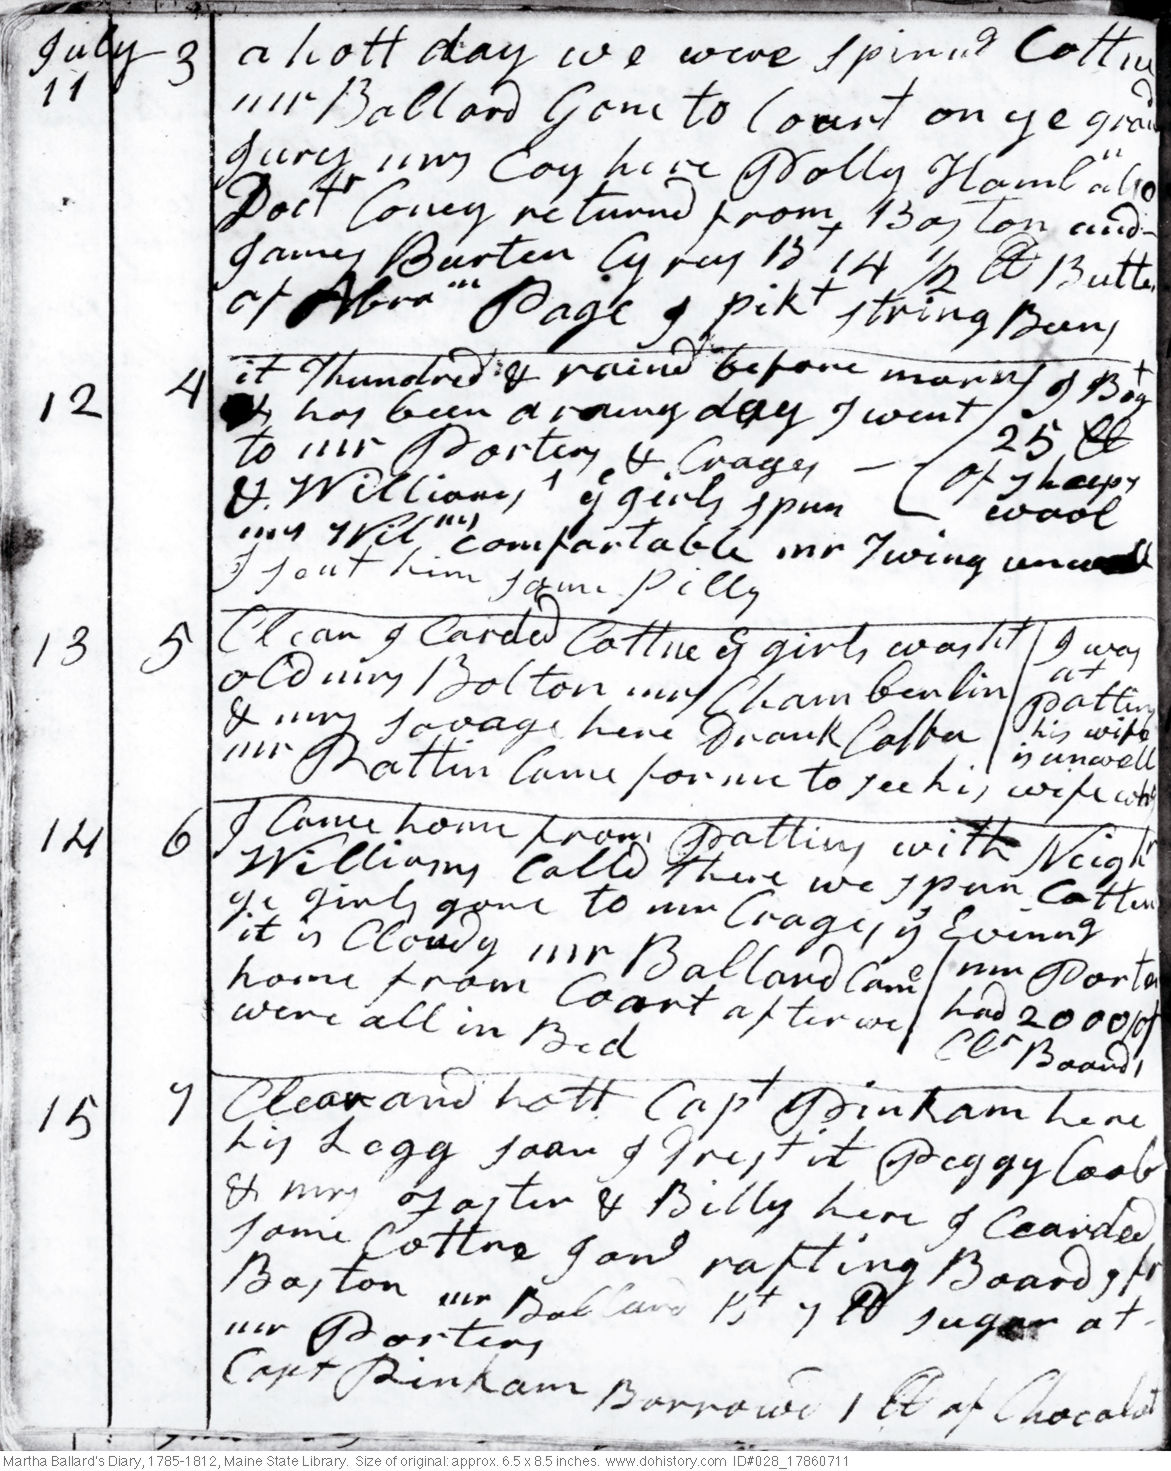 July 3 a hott day we were spinng Cottne
11 mr Ballard Gone to Court on ye grand
Jurey mrs Coy here Polly Hamln also
Doctr Coney returnd from Boston and
James Burten Cyrus Bt 14 1/2 lb Butter
of Abram Page I pikt string Beens
12 4 it Thundred & raind before morn
& has been a rainy day I went
to mr Porters & Crages
& Williams' ye girls spun
mrs Wilms comfortable mr Twing unwell
I sent him some Pills
I Bot
25 lb
of sheeps
wool
13 5 Clear I Carded Cottne ye girls washt
old mrs Bolton mrs Chamberlin
& mrs Savage here Drank Coffee
mr Pattin Came for me to see his wife who
I was
at
Pattins
his wife
is unwell
14 6 I Came home from Pattins with Neighr
Williams Calld there we spun Cotten
ye girls gone to mr Crages ys Evinng
it is Cloudy mr Ballard Came
home from Coart after we
were all in Bed
mr Porter
had 2000 of
Clr Boards
15 7 Clear and hott Capt Pinkam here
his Legg soar I Drest it Peggy Coob
& mrs Foster & Billy here I Cearded
some Cottne Jond rafting Boards fr
Boston mr Ballard Bt 7 lb sugar at
mr Porters
Capt Pinkam Borrowd 1 lb of Chocolat
Martha Ballard's Diary, 1785-1812, Maine State Library. Size of original: approx. 6.5 x 8.5 inches. www.dohistory.com ID#028_17860711